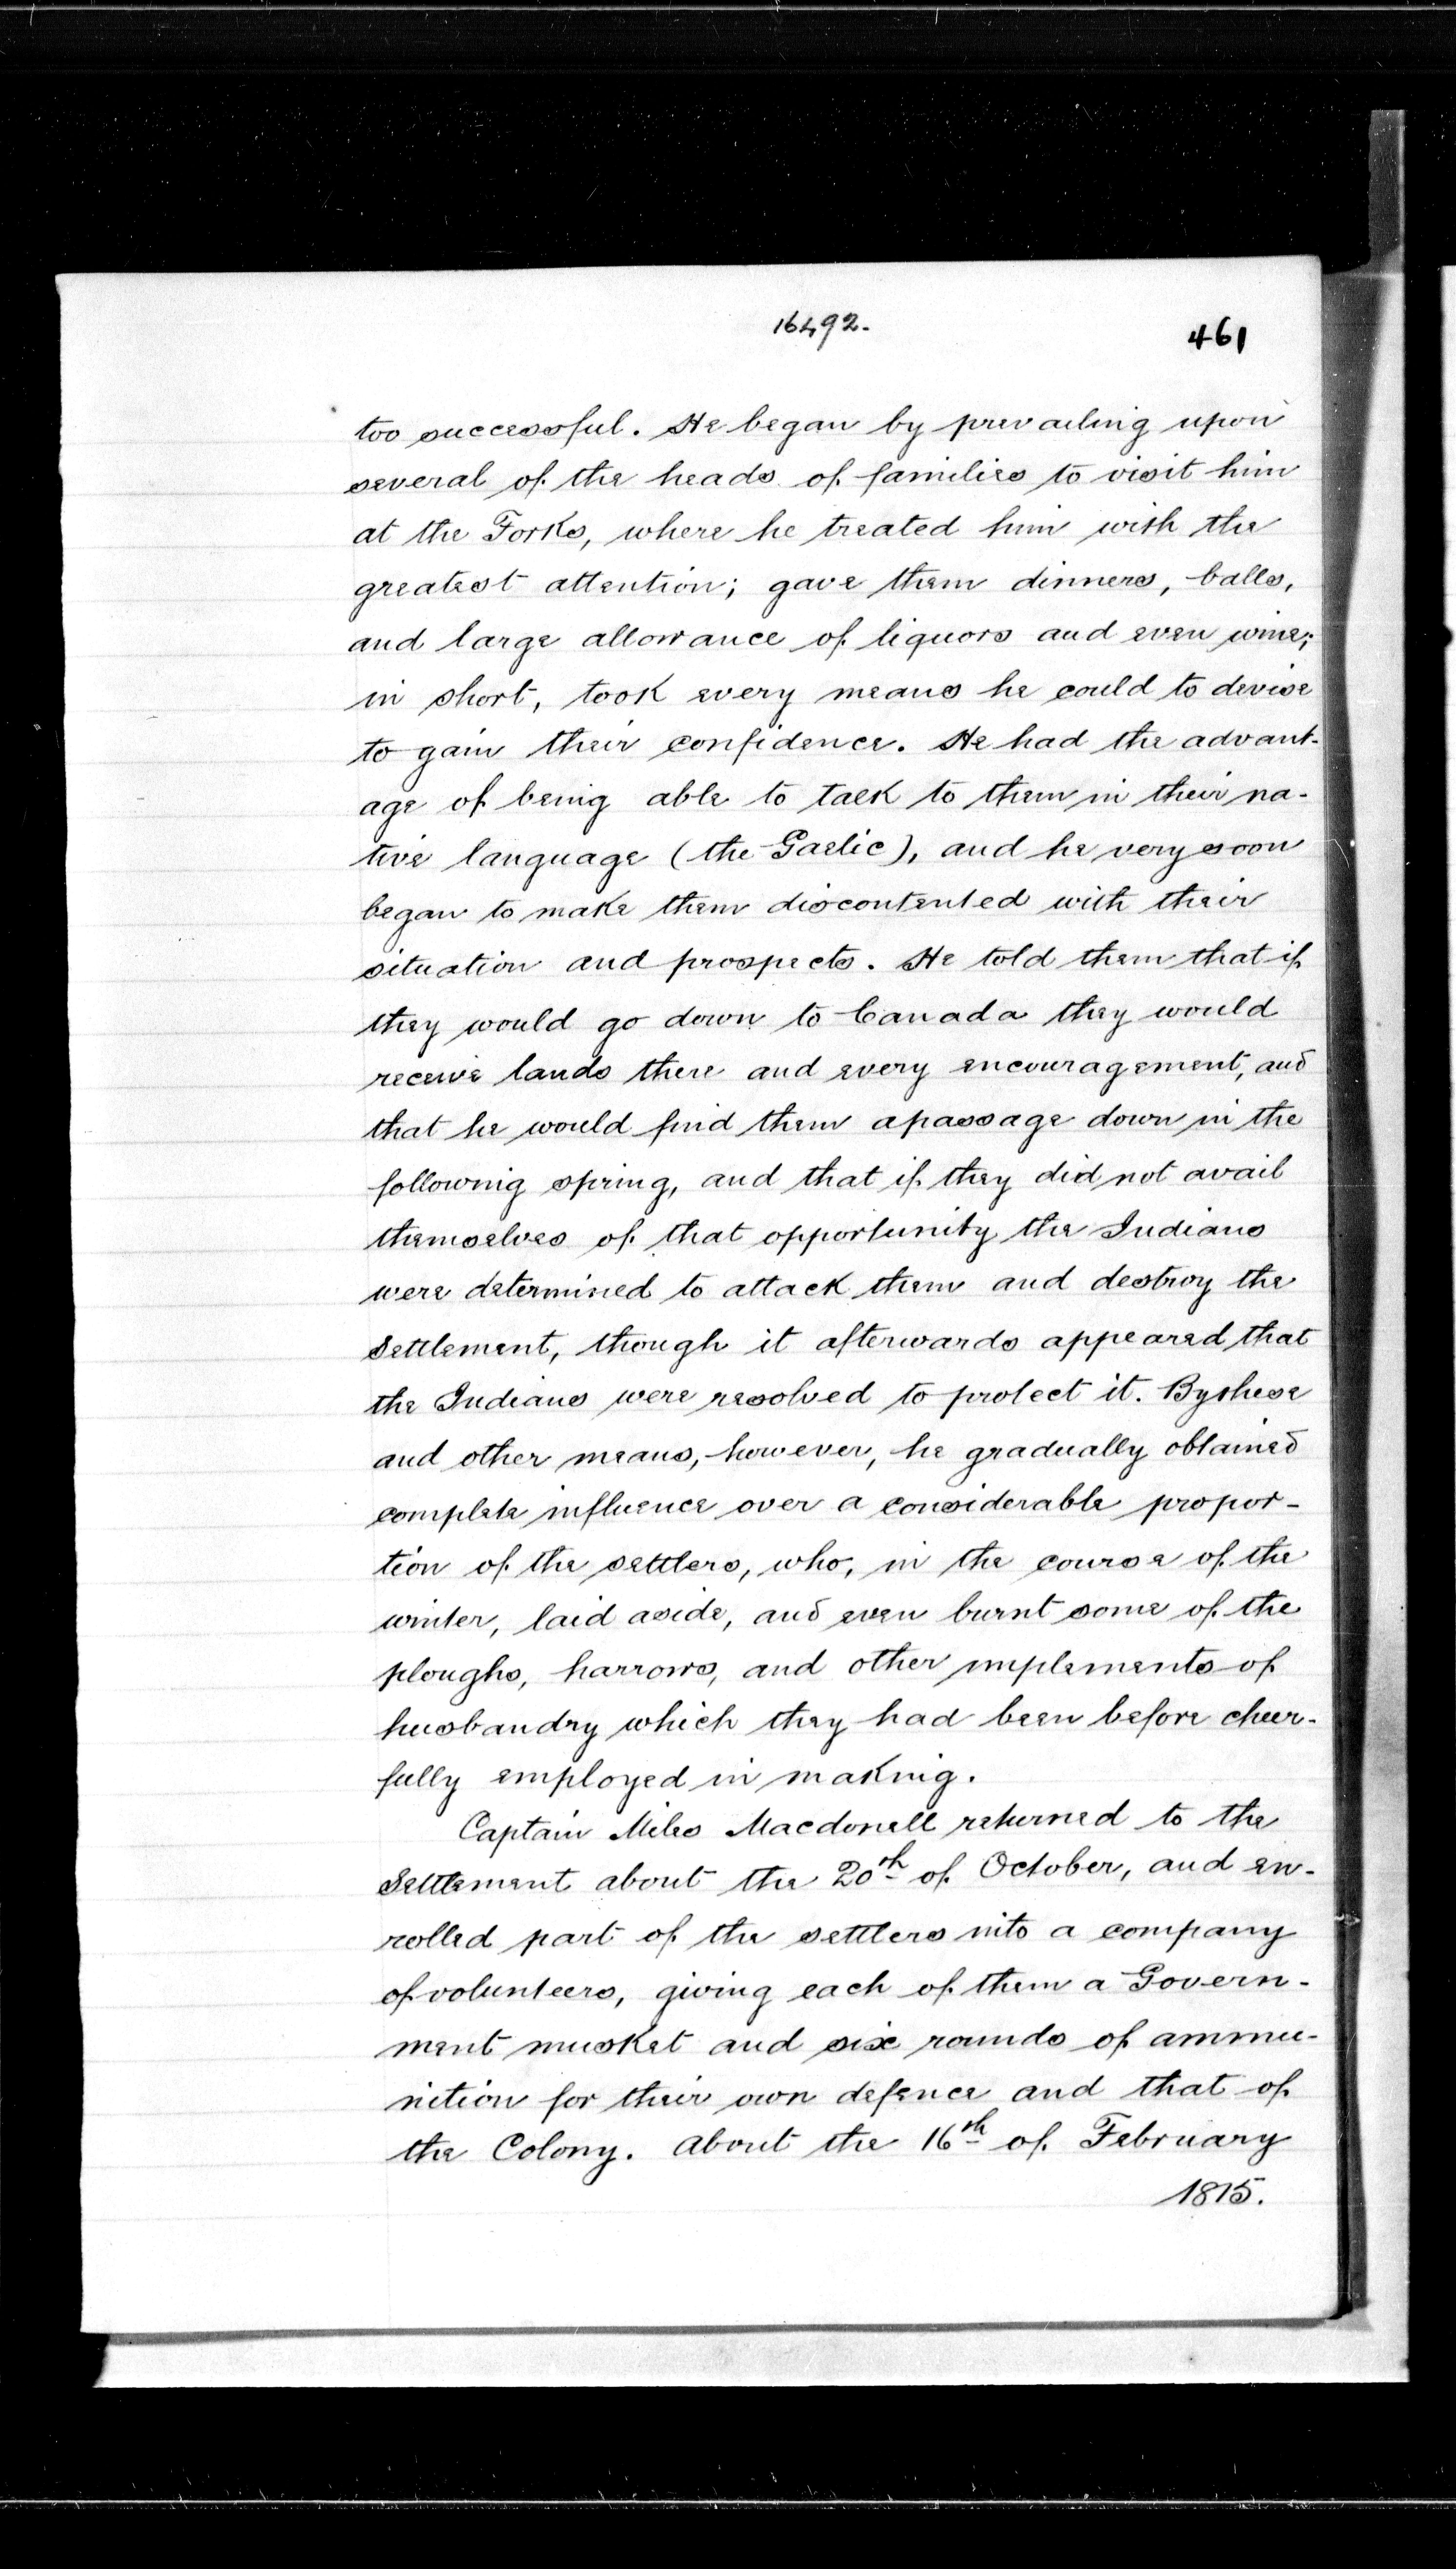 16492.
461
too successful. He began by prevailing upon
several of the heads of families to visit him
at the Forks, where he treated him with the
greatest attention; gave them dinners, balls,
and large allowance of liquors and even wine;
in short, took every means he could to devise
to gain their confidence. He had the advant-
age of being able to talk to them in their na-
tive language (the Gaelic), and he very soon
began to make them discontented with their
situation and prospects. He told them that if
they would go down to Canada they would
receive lands there and every encouragement, and
that he would find them a passage down in the
following spring, and that if they did not avail
themselves of that opportunity the Indians
were determined to attack them and destroy the
Settlement, though it afterwards appeared that
the Indians were resolved to protect it. By these
and other means, however, he gradually obtained
complete influence over a considerable propor-
tion of the settlers, who, in the course of the
winter, laid aside, and even burnt some of the
ploughs, harrows, and other implements of
husbandry which they had been before cheer-
fully employed in making.
Captain Miles Macdonell returned to the
Settlement about the 20th of October, and en-
rolled part of the settlers into a company
of volunteers, giving each of them a Govern-
ment musket and six rounds of ammu-
nition for their own defence and that of
the Colony. About the 16th of February
1815.